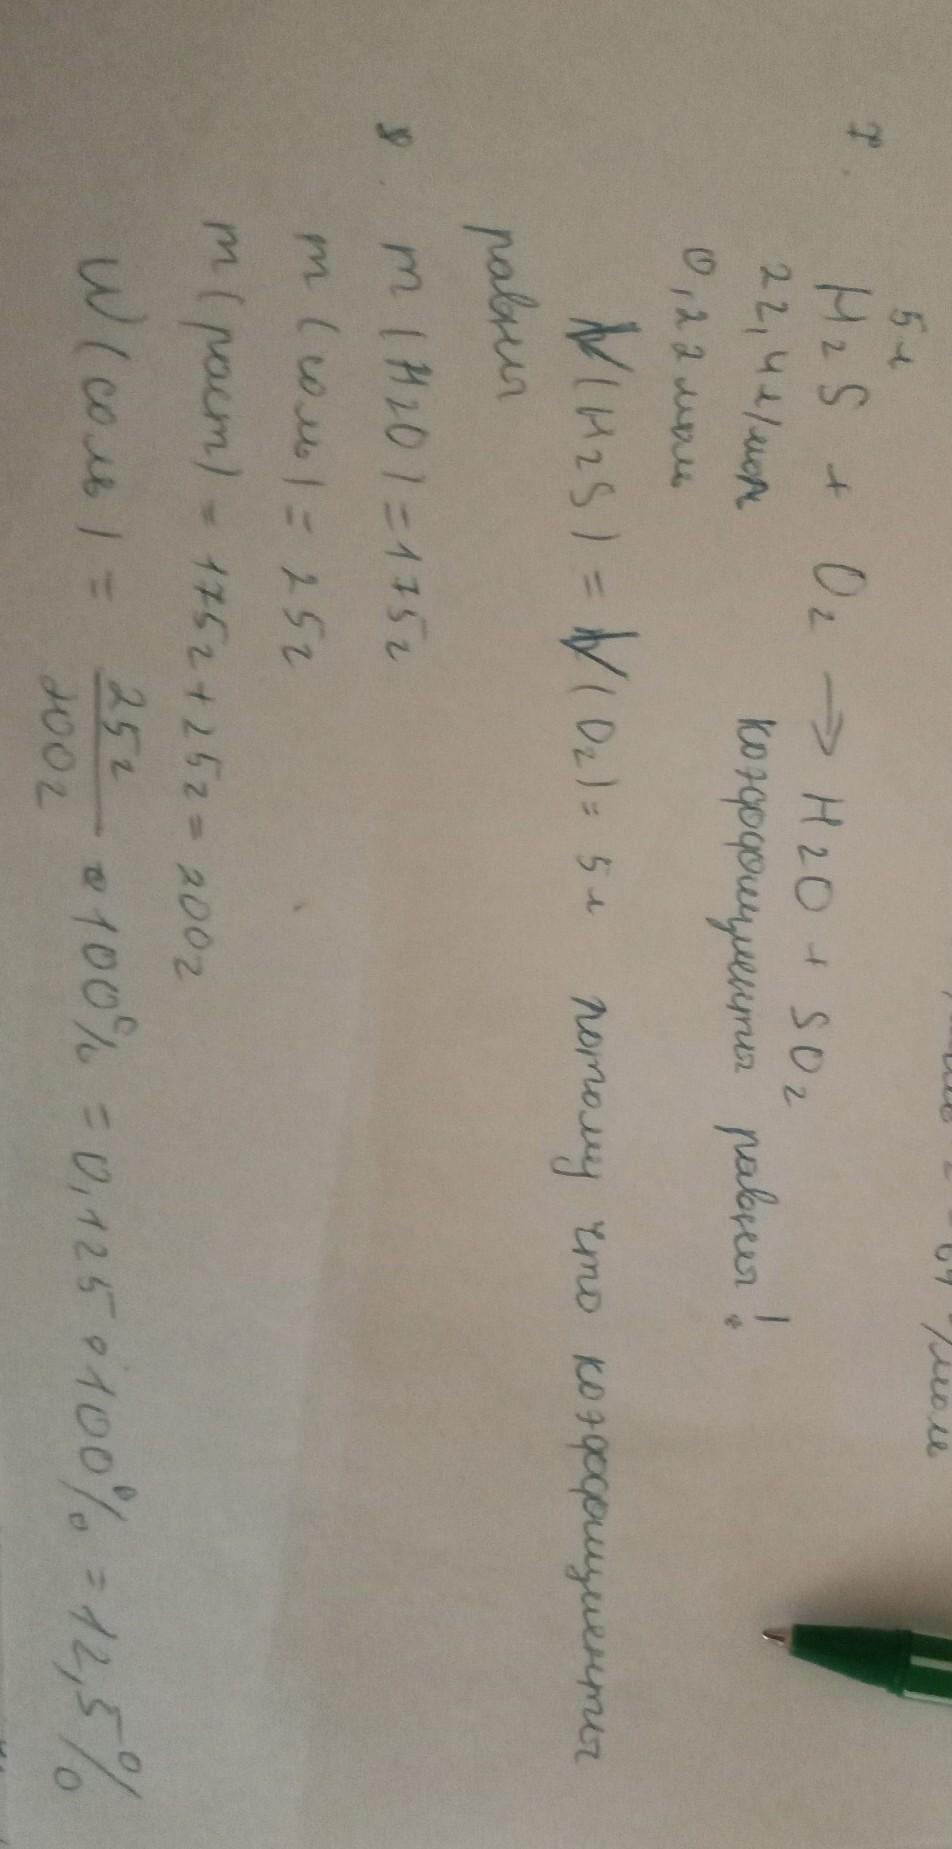 7.
5л
H2S + O2 → H2O + SO2
22,4л/мол коэффициенты равны!
0,22моль
V(H2S) = V(O2) = 5л потому что коэффициенты
равны
8. m(H2O) = 175г
m(соль) = 25г
m(раст) = 175г + 25г = 200г
W(соль) = 25г/200г • 100% = 0,125 • 100% = 12,5%